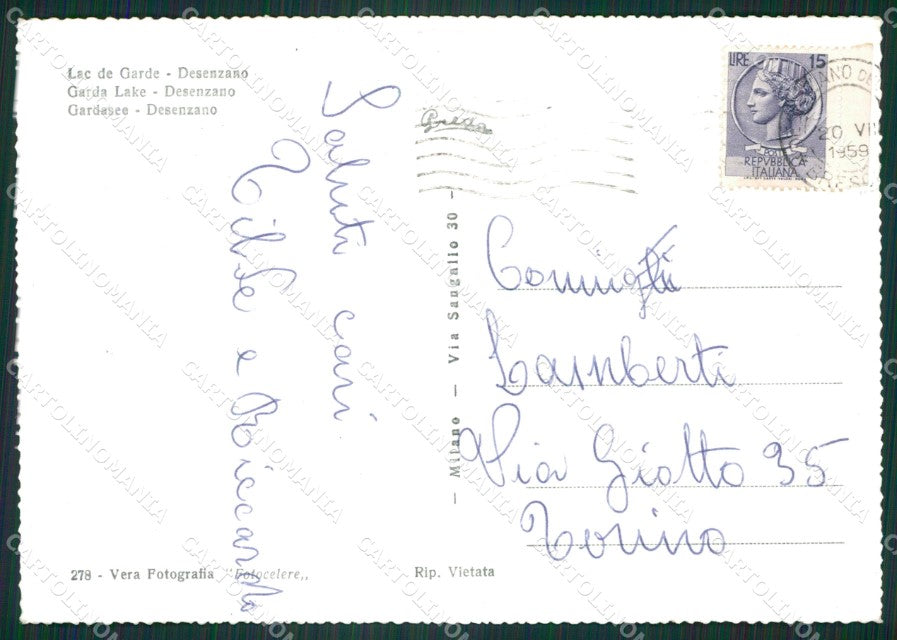 Lac de Garde - Desenzano
Garda Lake - Desenzano
Gardasee - Desenzano
Saluti cari
Tilde e Riccardo
LIRE 15
POSTE
REPVBBLICA
ITALIANA
20 VII
1959
Coniugi
Lamberti
Via Giotto 35
Torino
- Milano - Via Sangallo 30 -
278 - Vera Fotografia "Fotocelere,,
Rip. Vietata
CARTOLINOMANIA